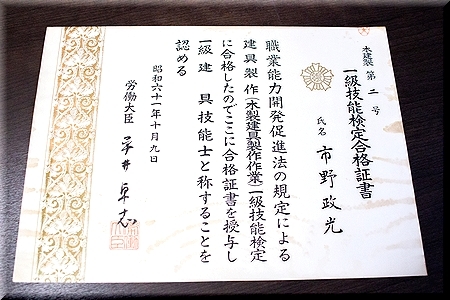 木建製 第二号
一級技能検定合格証書
氏名 市野政光
職業能力開発促進法の規定による
建具製作(木製建具製作作業)一級技能検定
に合格したのでここに合格証書を授与し
一級建具技能士と称することを
認める
昭和六十一年十月九日
労働大臣 平井卓志